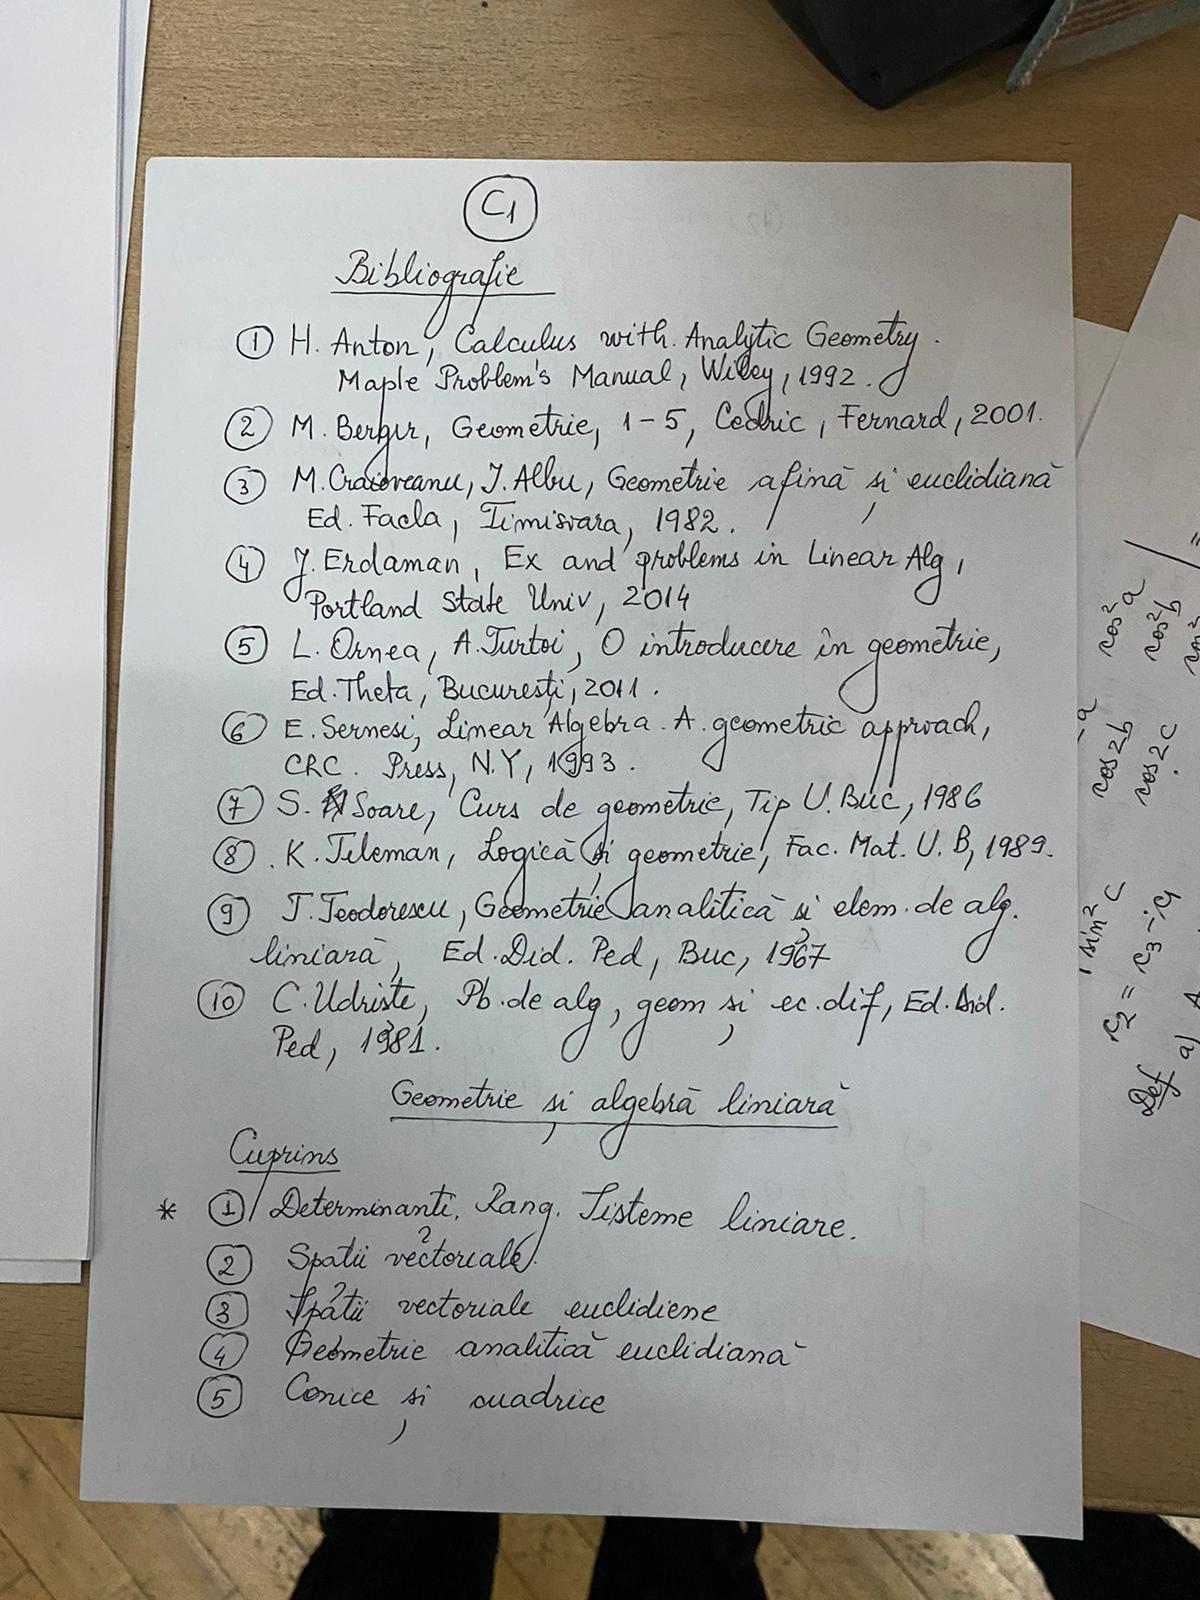 C1
Bibliografie
① H. Anton, Calculus with. Analytic Geometry.
Maple Problem's Manual, Wiley, 1992.
② M. Berger, Geometrie, 1-5, Cedric, Fernard, 2001.
③ M. Craioveanu, I. Albu, Geometrie afină și euclidiană
Ed. Facla, Timisoara, 1982.
④ J. Erdaman, Ex and problems in Linear Alg,
Portland State Univ, 2014
⑤ L. Ornea, A. Turtoi, O introducere în geometrie,
Ed. Theta, București, 2011.
⑥ E. Sernesi, Linear Algebra. A. geometric approach,
CRC. Press, N.Y, 1993.
⑦ S. Soare, Curs de geometrie, Tip U. Buc, 1986
⑧ . K. Teleman, Logică și geometrie, Fac. Mat. U. B, 1989.
⑨ T. Teodorescu, Geometrie analitică și elem. de alg.
liniară, Ed. Did. Ped, Buc, 1967
⑩ C. Udriște, Pb. de alg, geom și ec. dif, Ed. Did.
Ped, 1981.
Geometrie și algebră liniară
Cuprins
* ① Determinanți. Rang. Sisteme liniare.
② Spații vectoriale.
③ Spații vectoriale euclidiene
④ Geometrie analitică euclidiană
⑤ Conice și cuadrice
cos² a
cos² b
cos²
a
cos 2b
cos 2c
sin² c
r2 = r3 - r1
Def a)